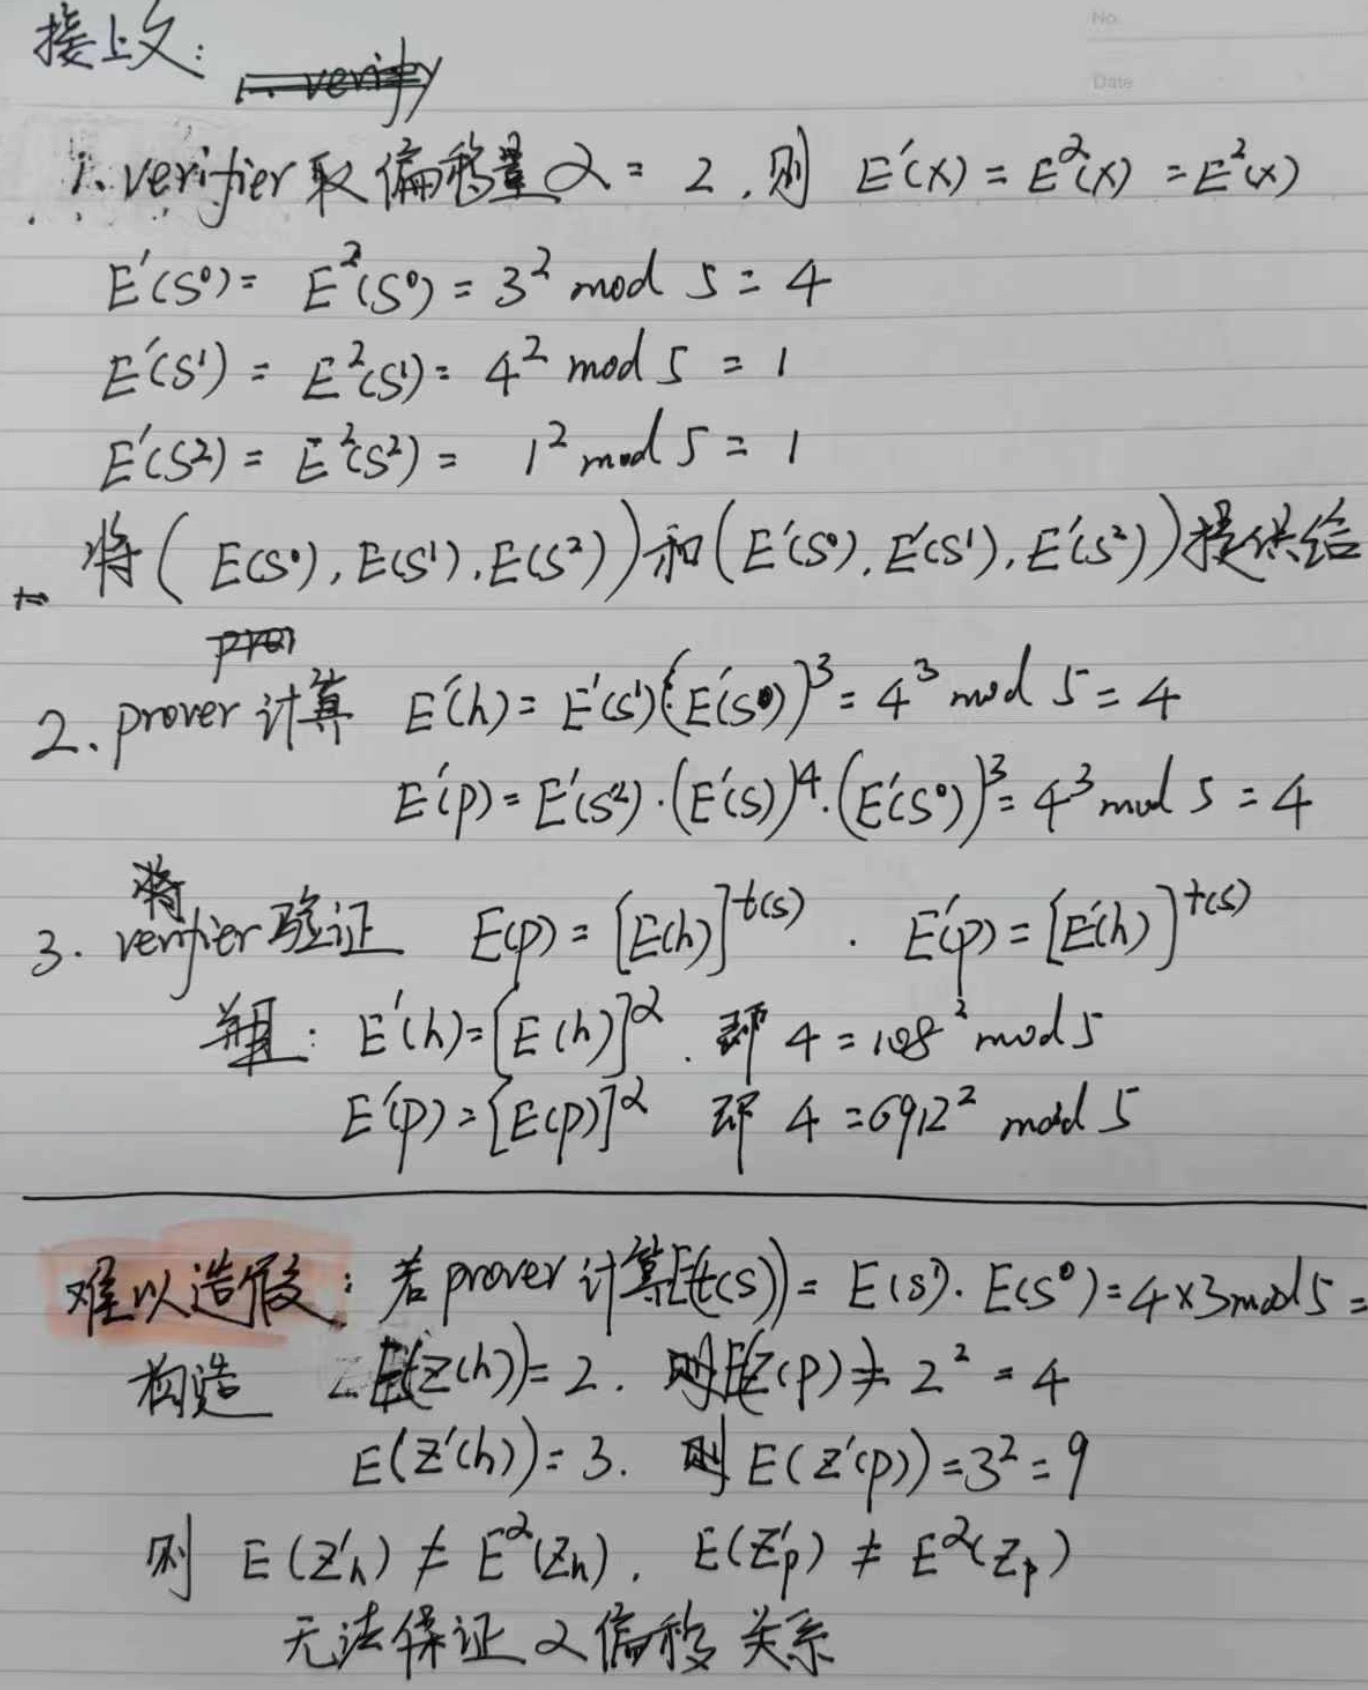 No.
Date
接上文:
1. verify
1. verifier 取偏移量 α = 2, 则 E'(x) = E^α(x) = E²(x)
E'(S⁰) = E²(S⁰) = 3² mod 5 = 4
E'(S¹) = E²(S¹) = 4² mod 5 = 1
E'(S²) = E²(S²) = 1² mod 5 = 1
将 ( E(S⁰), E(S¹), E(S²) ) 和 ( E'(S⁰), E'(S¹), E'(S²) ) 提供给
2. prover 计算 E'(h) = E'(s¹)·(E'(s⁰))³ = 4³ mod 5 = 4
E'(p) = E'(s²)·(E'(s))⁴·(E'(s⁰))³ = 4³ mod 5 = 4
3. 将 verifier 验证 E(p) = [E(h)]^t(s) . E'(p) = [E'(h)]^t(s)
并且: E'(h) = [E(h)]^α . 即 4 = 108² mod 5
E'(p) = [E(p)]^α 即 4 = 6912² mod 5
难以造假: 若 prover 计算 E(t(s)) = E(s¹). E(s⁰) = 4×3 mod 5 =
构造 E(Z(h)) = 2. 则 E(Z(p)) = 2² = 4
E(Z'(h)) = 3. 则 E(Z'(p)) = 3² = 9
则 E(Z'h) ≠ E^α(Zh). E(Z'p) ≠ E^α(Zp)
无法保证 α 偏移关系